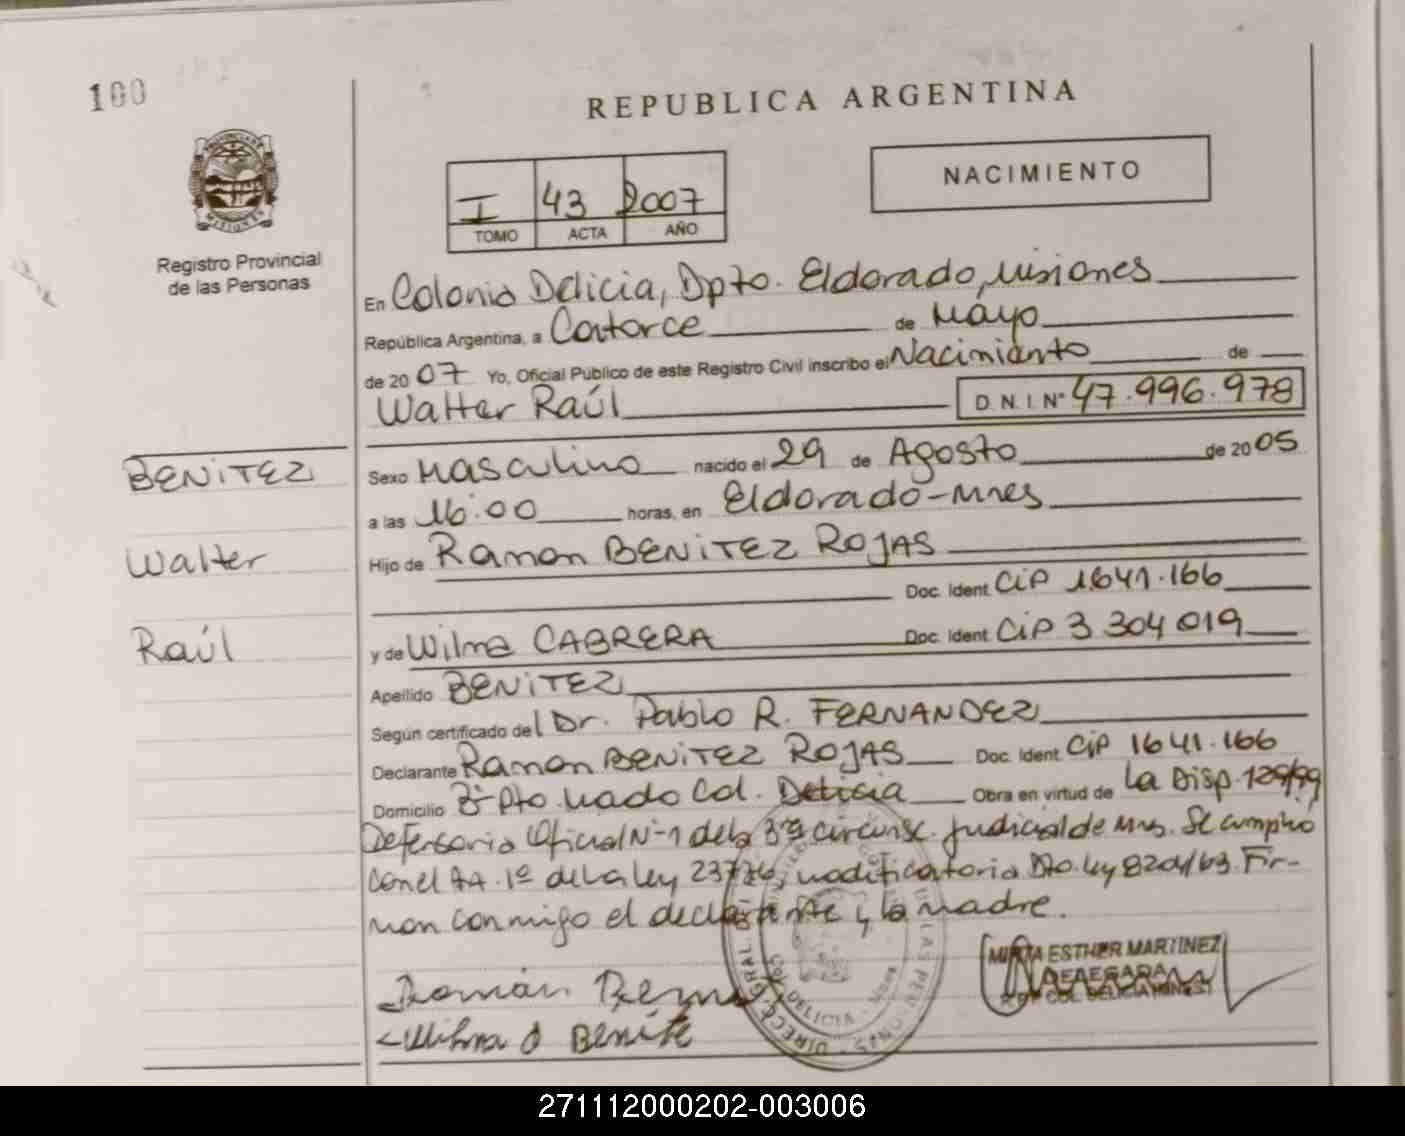 100
REPUBLICA ARGENTINA
NACIMIENTO
I 43 2007
TOMO ACTA AÑO
Registro Provincial
de las Personas
En Colonia Delicia, Dpto. Eldorado, Misiones
República Argentina, a Catorce de Mayo
de 20 07 Yo, Oficial Público de este Registro Civil inscribo el Nacimiento de
Walter Raúl D.N.I. N° 47.996.978
BENITEZ
Sexo Masculino nacido el 29 de Agosto de 20 05
a las 16:00 horas, en Eldorado-Mnes
Walter
Hijo de Ramon BENITEZ ROJAS
Doc. Ident. CiP 1641.166
Raúl
y de Wilma CABRERA Doc. Ident. CiP 3 304 019
Apellido BENITEZ
Según certificado del Dr. Pablo R. FERNANDEZ
Declarante Ramon BENITEZ ROJAS Doc. Ident. CiP 1641.166
Domicilio Pto. Mado Col. Delicia Obra en virtud de La Disp. 129/99
Defensoria Oficial N°1 de la 3ra circunsc. Judicial de Mns. Se cumplio
con el Art. 1° de la ley 23776, modificatoria Dto. ley 8204/63. Fir-
man conmigo el declarante y la madre.
MIRTA ESTHER MARTINEZ
COL. DELICIA
271112000202-003006